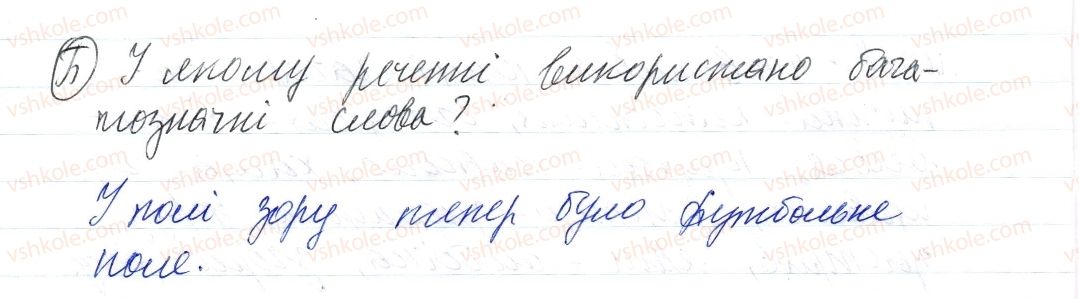 Б У якому реченні використано бага-
тозначні слова?
У полі зору тепер було футбольне
поле.